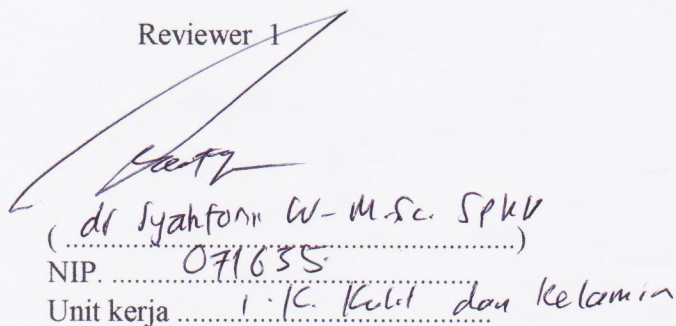 Reviewer 1
( dr Syahfori W - M.Sc. SpKK )
NIP. 071635
Unit kerja I.K. Kulit dan Kelamin